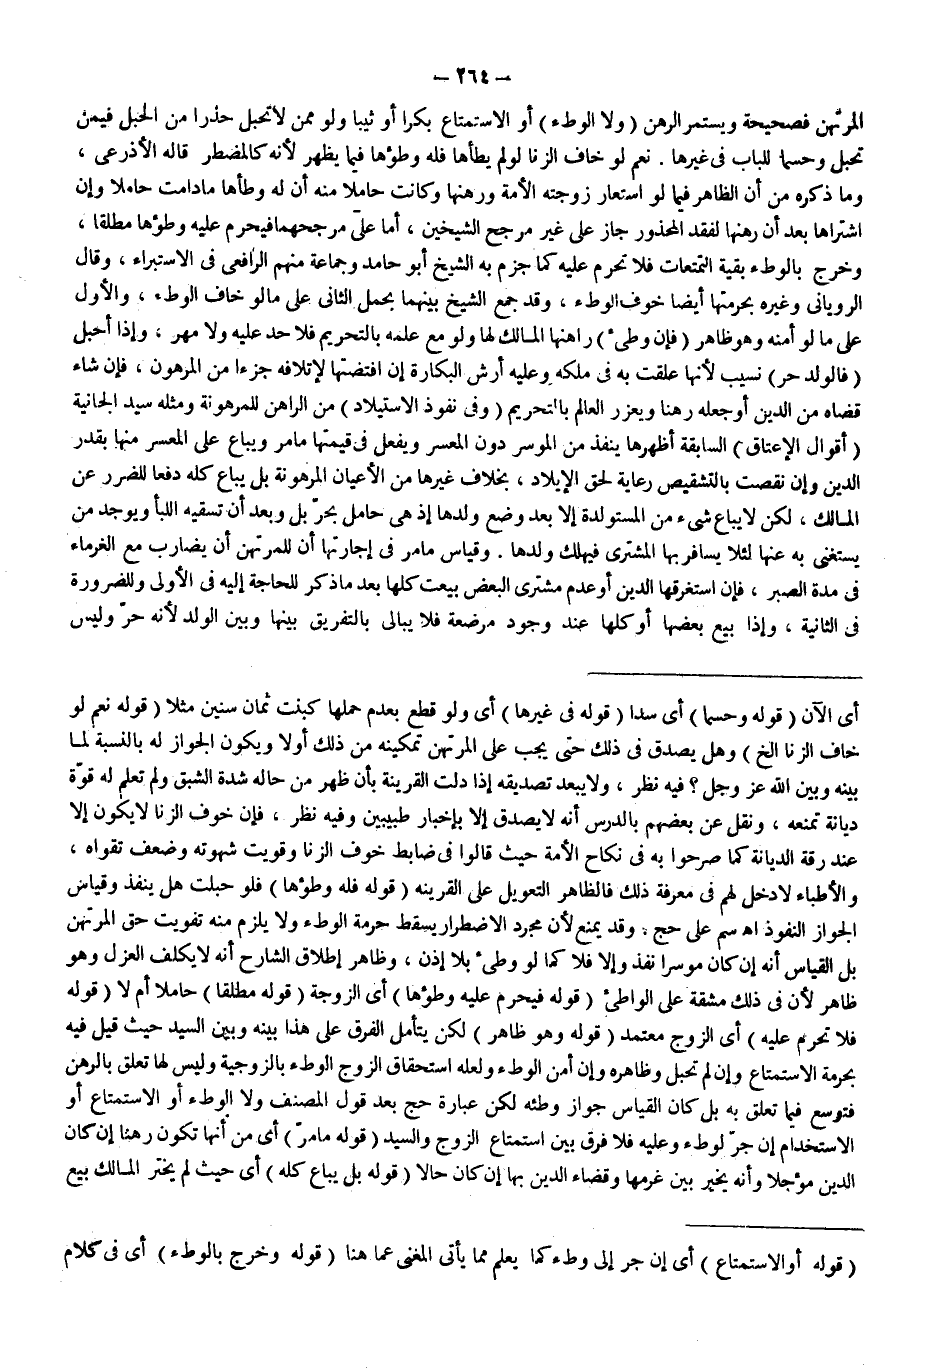 — ٢٦٤ —
المرتهن فصحيحة ويستمر الرهن ( ولا الوطء ) أو الاستمتاع بكرا أو ثيبا ولو ممن لاتحبل حذرا من الحبل فيمن
تحبل وحسما للباب فى غيرها . نعم لو خاف الزنا لولم يطأها فله وطؤها فيما يظهر لأنه كالمضطر قاله الأذرعى ،
وما ذكره من أن الظاهر فيما لو استعار زوجته الأمة ورهنها وكانت حاملا منه أن له وطأها مادامت حاملا وإن
اشتراها بعد أن رهنها لفقد المحذور جاز على غير مرجح الشيخين ، أما على مرجحهما فيحرم عليه وطؤها مطلقا ،
وخرج بالوطء بقية التمتعات فلا تحرم عليه كما جزم به الشيخ أبو حامد وجماعة منهم الرافعى فى الاستبراء ، وقال
الرويانى وغيره بحرمتها أيضا خوف الوطء ، وقد جمع الشيخ بينهما بحمل الثانى على مالو خاف الوطء ، والأول
على ما لو أمنه وهو ظاهر ( فإن وطئ ) راهنها المالك لها ولو مع علمه بالتحريم فلا حد عليه ولا مهر ، وإذا أحبل
( فالولد حر ) نسيب لأنها علقت به فى ملكه وعليه أرش البكارة إن افتضتها لإتلافه جزءا من المرهون ، فإن شاء
قضاه من الدين أوجعله رهنا ويعزر العالم بالتحريم ( وفى نفوذ الاستيلاد ) من الراهن للمرهونة ومثله سيد الجانية
( أقوال الإعتاق ) السابقة أظهرها ينفذ من الموسر دون المعسر ويفعل فى قيمتها مامر ويباع على المعسر منها بقدر
الدين وإن نقصت بالتشقيص رعاية لحق الإيلاد ، بخلاف غيرها من الأعيان المرهونة بل يباع كله دفعا للضرر عن
المالك ، لكن لايباع شىء من المستولدة إلا بعد وضع ولدها إذ هى حامل بحرّ بل وبعد أن تسقيه اللبأ ويوجد من
يستغنى به عنها لئلا يسافر بها المشترى فيهلك ولدها . وقياس مامر فى إجارتها أن للمرتهن أن يضارب مع الغرماء
فى مدة الصبر ، فإن استغرقها الدين أوعدم مشترى البعض بيعت كلها بعد ماذكر للحاجة إليه فى الأولى وللضرورة
فى الثانية ، وإذا بيع بعضها أوكلها عند وجود مرضعة فلا يبالى بالتفريق بينها وبين الولد لأنه حرّ وليس
أى الآن ( قوله وحسما ) أى سدا ( قوله فى غيرها ) أى ولو قطع بعدم حملها كبنت ثمان سنين مثلا ( قوله نعم لو
خاف الزنا الخ ) وهل يصدق فى ذلك حتى يجب على المرتهن تمكينه من ذلك أولا ويكون الجواز له بالنسبة لما
بينه وبين الله عز وجل ؟ فيه نظر ، ولايبعد تصديقه إذا دلت القرينة بأن ظهر من حاله شدة الشبق ولم تعلم له قوّة
ديانة تمنعه ، ونقل عن بعضهم بالدرس أنه لايصدق إلا بإخبار طبيبين وفيه نظر ، فإن خوف الزنا لايكون إلا
عند رقة الديانة كما صرحوا به فى نكاح الأمة حيث قالوا فى ضابط خوف الزنا وقويت شهوته وضعف تقواه ،
والأطباء لادخل لهم فى معرفة ذلك فالظاهر التعويل على القرينه ( قوله فله وطؤها ) فلو حبلت هل ينفذ وقياس
الجواز النفوذ اه سم على حج . وقد يمنع لأن مجرد الاضطرار يسقط حرمة الوطء ولا يلزم منه تفويت حق المرتهن
بل القياس أنه إن كان موسرا نفذ وإلا فلا كما لو وطئ بلا إذن ، وظاهر إطلاق الشارح أنه لايكلف العزل وهو
ظاهر لأن فى ذلك مشقة على الواطئ ( قوله فيحرم عليه وطؤها ) أى الزوجة ( قوله مطلقا ) حاملا أم لا ( قوله
فلا تحرم عليه ) أى الزوج معتمد ( قوله وهو ظاهر ) لكن يتأمل الفرق على هذا بينه وبين السيد حيث قيل فيه
بحرمة الاستمتاع وإن لم تحبل وظاهره وإن أمن الوطء ولعله استحقاق الزوج الوطء بالزوجية وليس لها تعلق بالرهن
فتوسع فيما تعلق به بل كان القياس جواز وطئه لكن عبارة حج بعد قول المصنف ولا الوطء أو الاستمتاع أو
الاستخدام إن جرّ لوطء وعليه فلا فرق بين استمتاع الزوج والسيد ( قوله مامرّ ) أى من أنها تكون رهنا إن كان
الدين مؤجلا وأنه يخير بين غرمها وقضاء الدين بها إن كان حالا ( قوله بل يباع كله ) أى حيث لم يختر المالك بيع
( قوله أوالاستمتاع ) أى إن جر إلى وطء كما يعلم مما يأتى المغنى عما هنا ( قوله وخرج بالوطء ) أى فى كلام